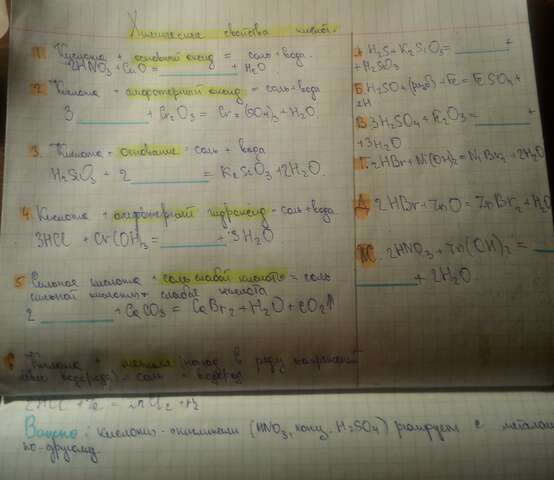 Химические свойства кислот.
1. Кислота + основный оксид = соль + вода
2HNO3 + CaO = ________ + H2O
2. Кислота + амфотерный оксид = соль + вода
3 ________ + Cr2O3 = Cr2(SO4)3 + H2O
3. Кислота + основание = соль + вода
H2SiO3 + 2 ________ = K2SiO3 + 2H2O
4. Кислота + амфотерный гидроксид = соль + вода
3HCl + Cr(OH)3 = ________ + 3H2O
5. Сильная кислота + соль слабой кислоты = соль
сильной кислоты + слабая кислота
2 ________ + CaCO3 = CaBr2 + H2O + CO2↑
Кислота + металл (в ряду напряжений
водорода) = соль + водород
Важно: кислоты-окислители (HNO3, конц. H2SO4) реагируют с металлами
по-другому.
H2S + K2SiO3 = ________ +
+ H2SiO3
Б. H2SO4 (разб) + Fe = FeSO4 +
В. 3H2SO4 + Fe2O3 = ________ +
+ 3H2O
Г. 2HBr + Ni(OH)2 = NiBr2 + 2H2O
Д. 2HBr + ZnO = ZnBr2 + H2O
Ж. 2HNO3 + Zn(OH)2 = __
________ + 2H2O